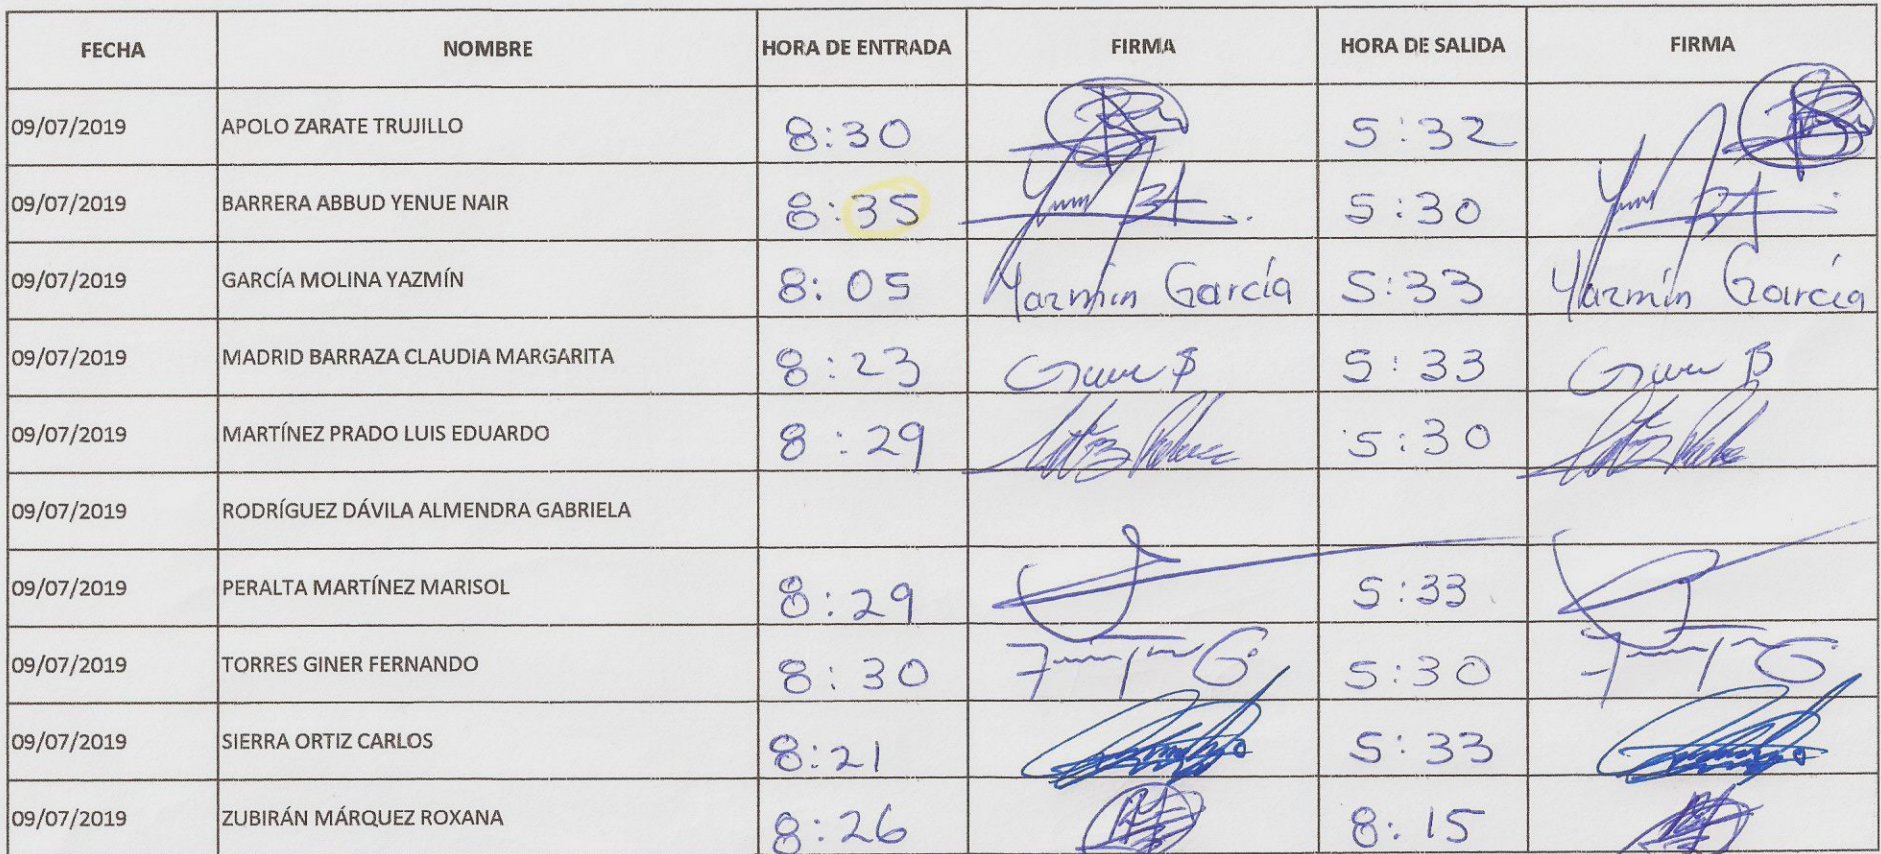 FECHA NOMBRE HORA DE ENTRADA FIRMA HORA DE SALIDA FIRMA
09/07/2019 APOLO ZARATE TRUJILLO 8:30 5:32
09/07/2019 BARRERA ABBUD YENUE NAIR 8:35 5:30
09/07/2019 GARCÍA MOLINA YAZMÍN 8:05 Yazmín García 5:33 Yazmín García
09/07/2019 MADRID BARRAZA CLAUDIA MARGARITA 8:23 5:33
09/07/2019 MARTÍNEZ PRADO LUIS EDUARDO 8:29 5:30
09/07/2019 RODRÍGUEZ DÁVILA ALMENDRA GABRIELA
09/07/2019 PERALTA MARTÍNEZ MARISOL 8:29 5:33
09/07/2019 TORRES GINER FERNANDO 8:30 5:30
09/07/2019 SIERRA ORTIZ CARLOS 8:21 5:33
09/07/2019 ZUBIRÁN MÁRQUEZ ROXANA 8:26 8:15